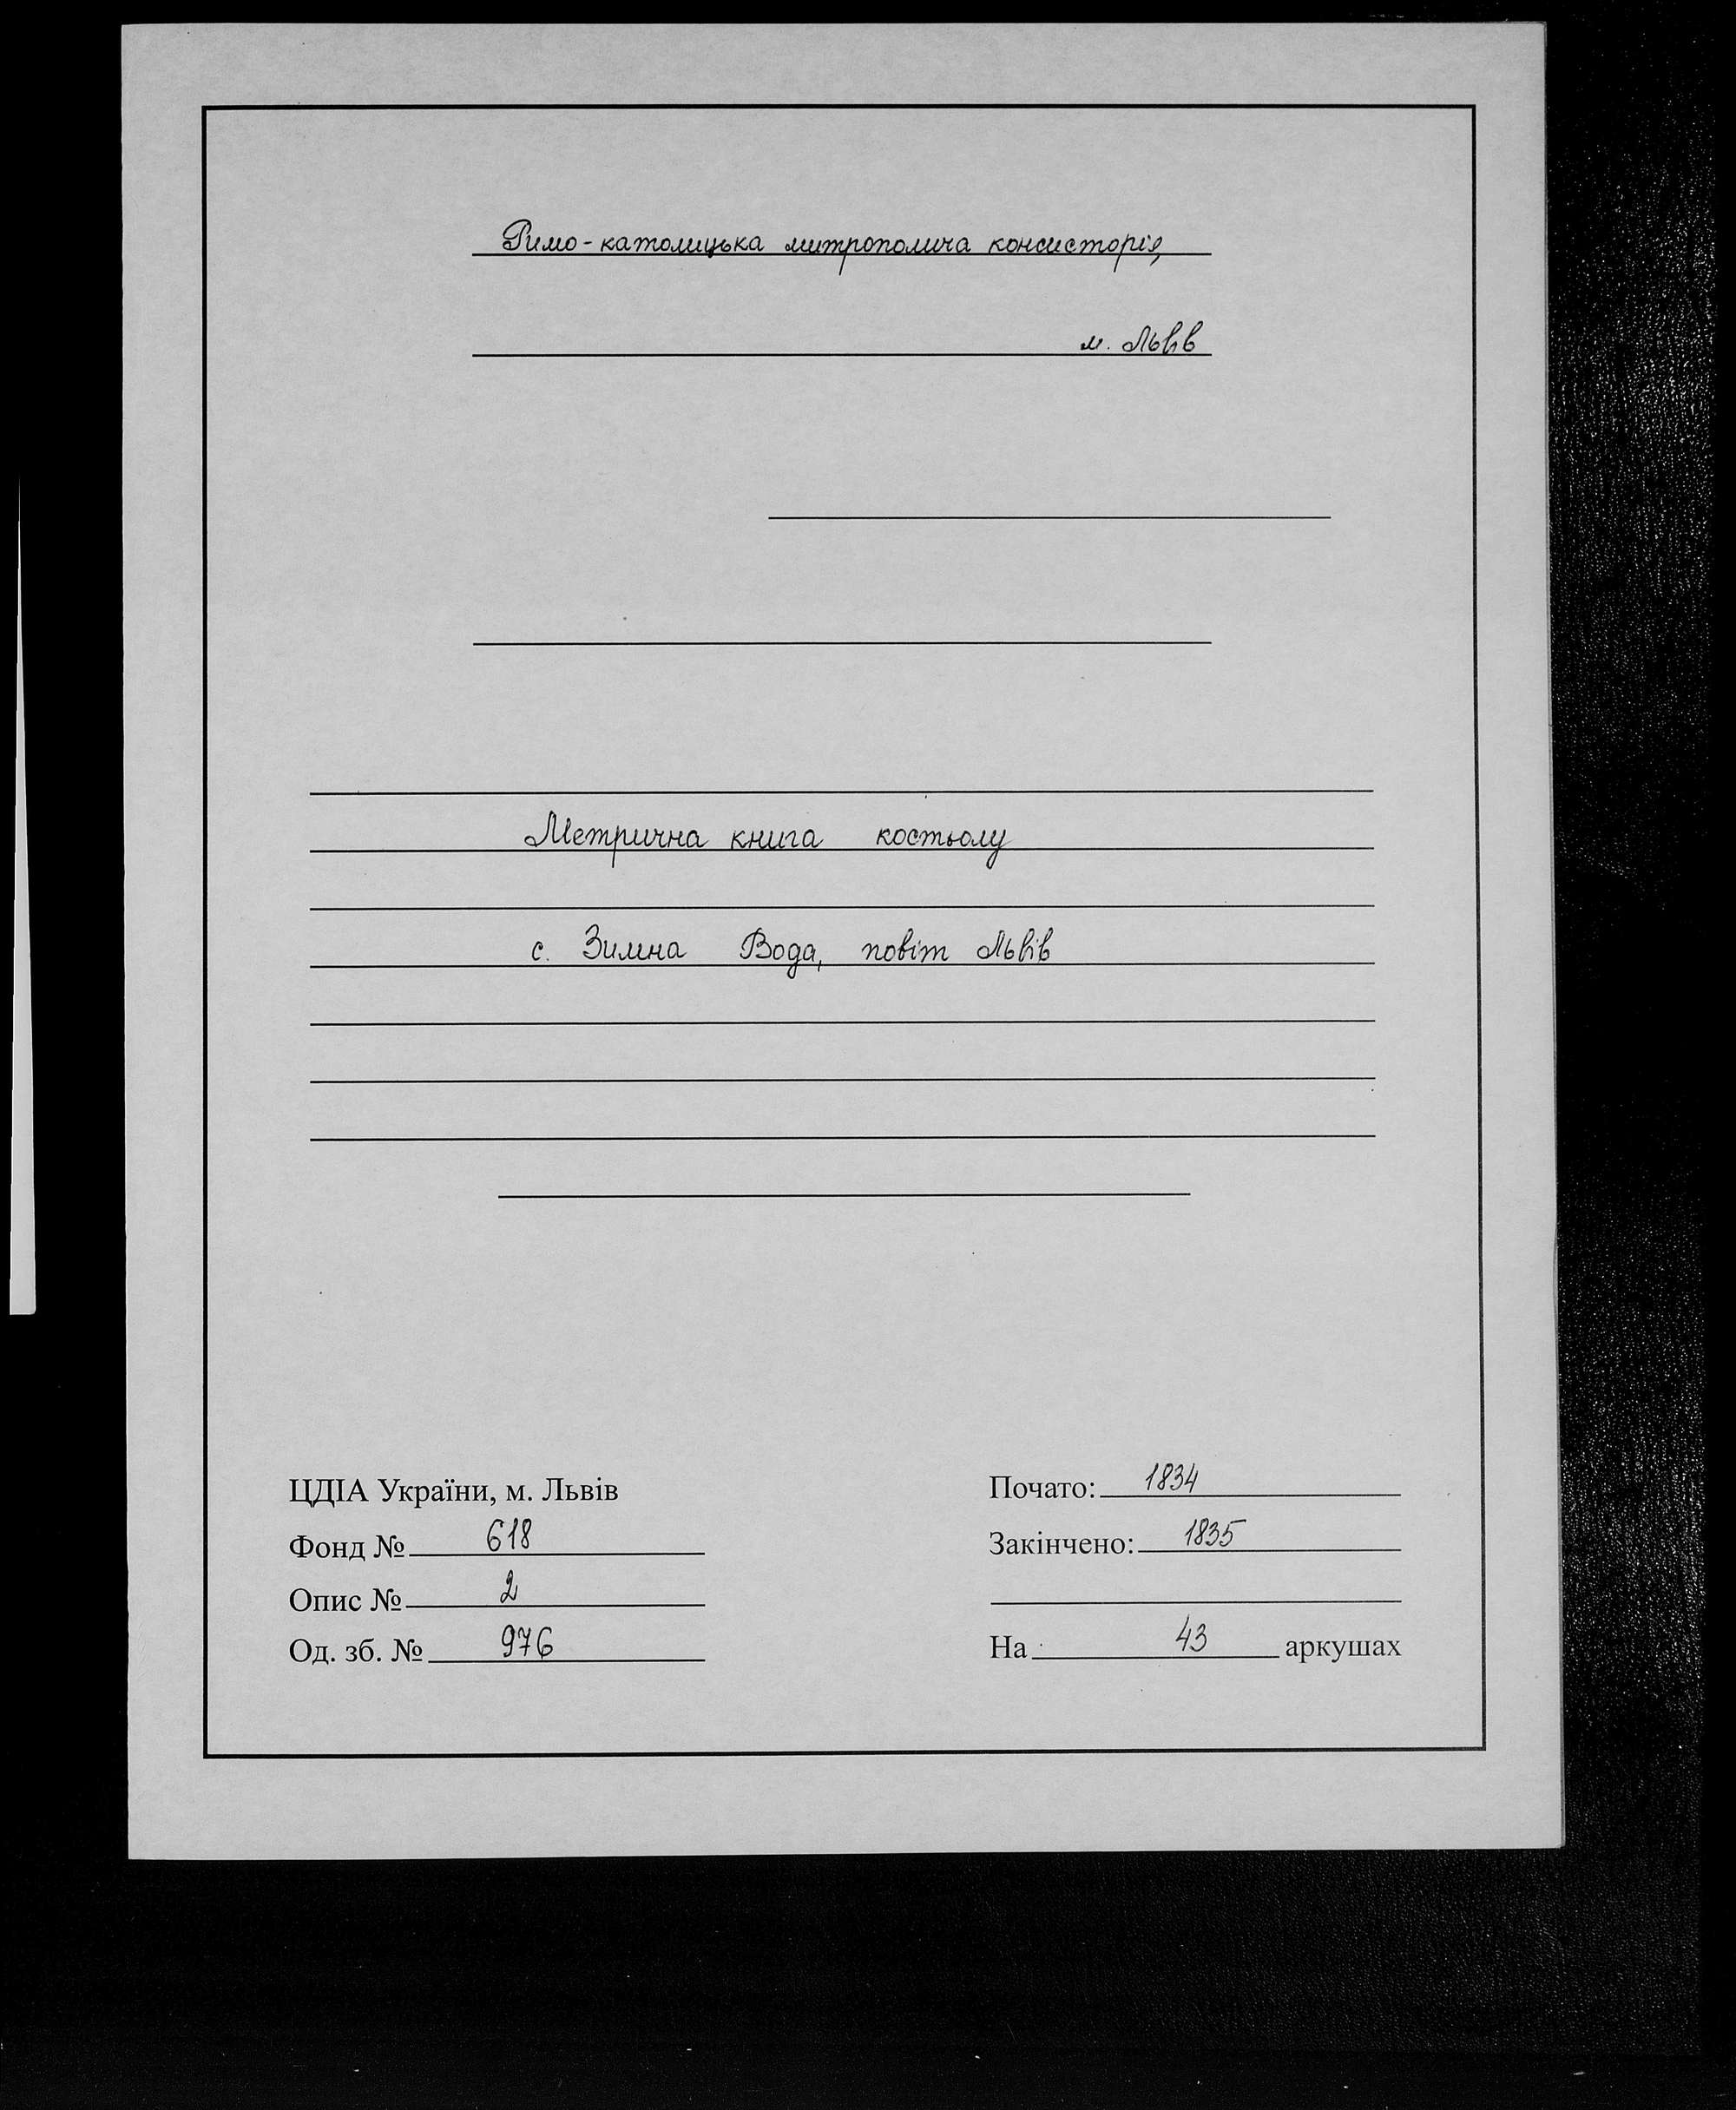 Римо-католицька митрополича консисторія,
м. Львів
Метрична книга костьолу
с. Зимна Вода, повіт Львів
ЦДІА України, м. Львів
Фонд № 618
Опис № 2
Од. зб. № 976
Почато: 1834
Закінчено: 1835
На 43 аркушах